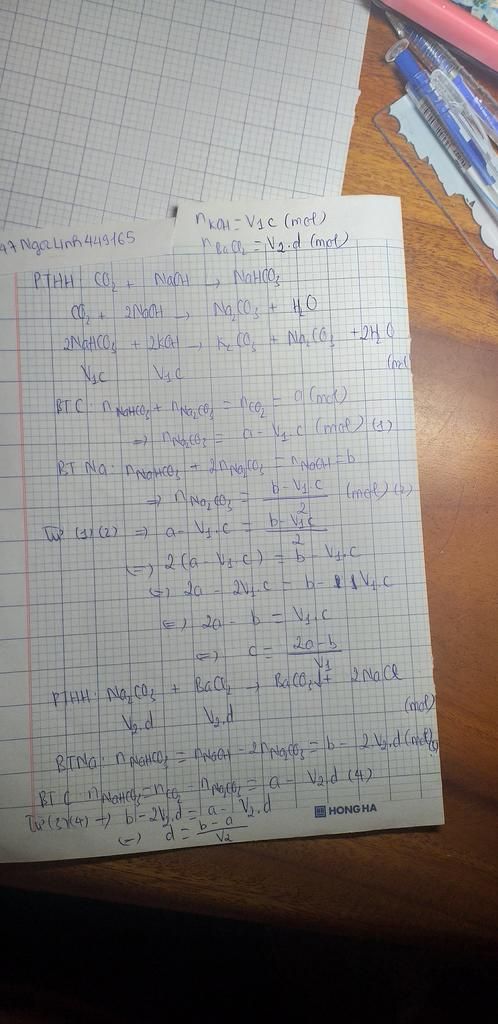 47 Ngọc Linh 449165
nKOH = V1C (mol)
nBaCl2 = V2.d (mol)
PTHH: CO2 + NaOH → NaHCO3
CO2 + 2NaOH → Na2CO3 + H2O
2NaHCO3 + 2KOH → K2CO3 + Na2CO3 + 2H2O
V1C V1C (mol)
BT C: nNaHCO3 + nNa2CO3 = nCO2 = a (mol)
⇒ nNa2CO3 = a - V1.c (mol) (1)
BT Na: nNaHCO3 + 2nNa2CO3 = nNaOH = b
⇒ nNa2CO3 = (b - V1.c)/2 (mol) (2)
Từ (1)(2) ⇒ a - V1.c = (b - V1c)/2
⇔ 2(a - V1.c) = b - V1.c
⇔ 2a - 2V1.c = b - V1.c
⇔ 2a - b = V1.c
⇔ c = (2a-b)/V1
PTHH: Na2CO3 + BaCl2 → BaCO3↓ + 2NaCl
V2.d V2.d (mol)
BTNa: nNaHCO3 = nNaOH - 2nNa2CO3 = b - 2.V2.d (mol) (3)
BT C: nNaHCO3 = nCO2 - nNa2CO3 = a - V2.d (4)
Từ (3)(4) → b - 2V2.d = a - V2.d
⇔ d = (b - a)/V2
HONG HA